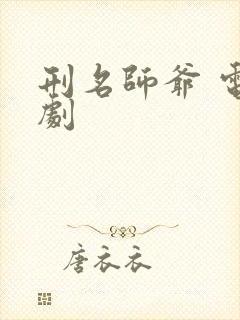 刑名師爺 電
劇
唐衣衣